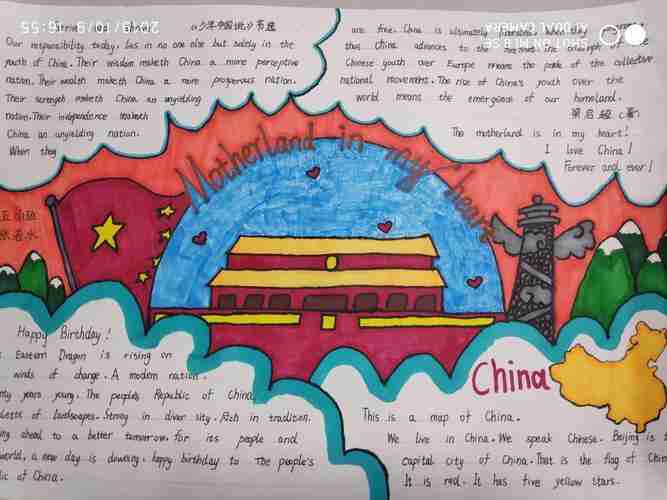 《少年中国说》节选
Our responsibility today, lies in no one else but solely in the
youth of China. Their wisdom maketh China a more perceptive
nation. Their wealth maketh China a more prosperous nation.
Their strength maketh China an unyielding
nation. Their independence maketh
China an unyielding nation.
When they
are free. China is ultimately
thus China advances to the
Chinese youth over Europe means the peak of the collective
national movement. The rise of China's youth over the
world means the emergence of our homeland.
梁启超(著)
The motherland is in my heart!
I love China!
Forever and ever!
Motherland in my heart
Happy Birthday!
Eastern Dragon is rising on
winds of change. A modern nation.
years young. The people's Republic of China,
of landscapes. Strong in diver sity. Rich in tradition.
ahead to a better tomorrow. for its people and
world, a new day is dawning. happy birthday to The people's
of China.
China
This is a map of China.
We live in China. We speak Chinese. Beijing is
capital city of China. That is the flag of
It is red. It has five yellow stars.
SHOT ON MI 8 SE
AI DUAL CAMERA
2019/10/9 16:55